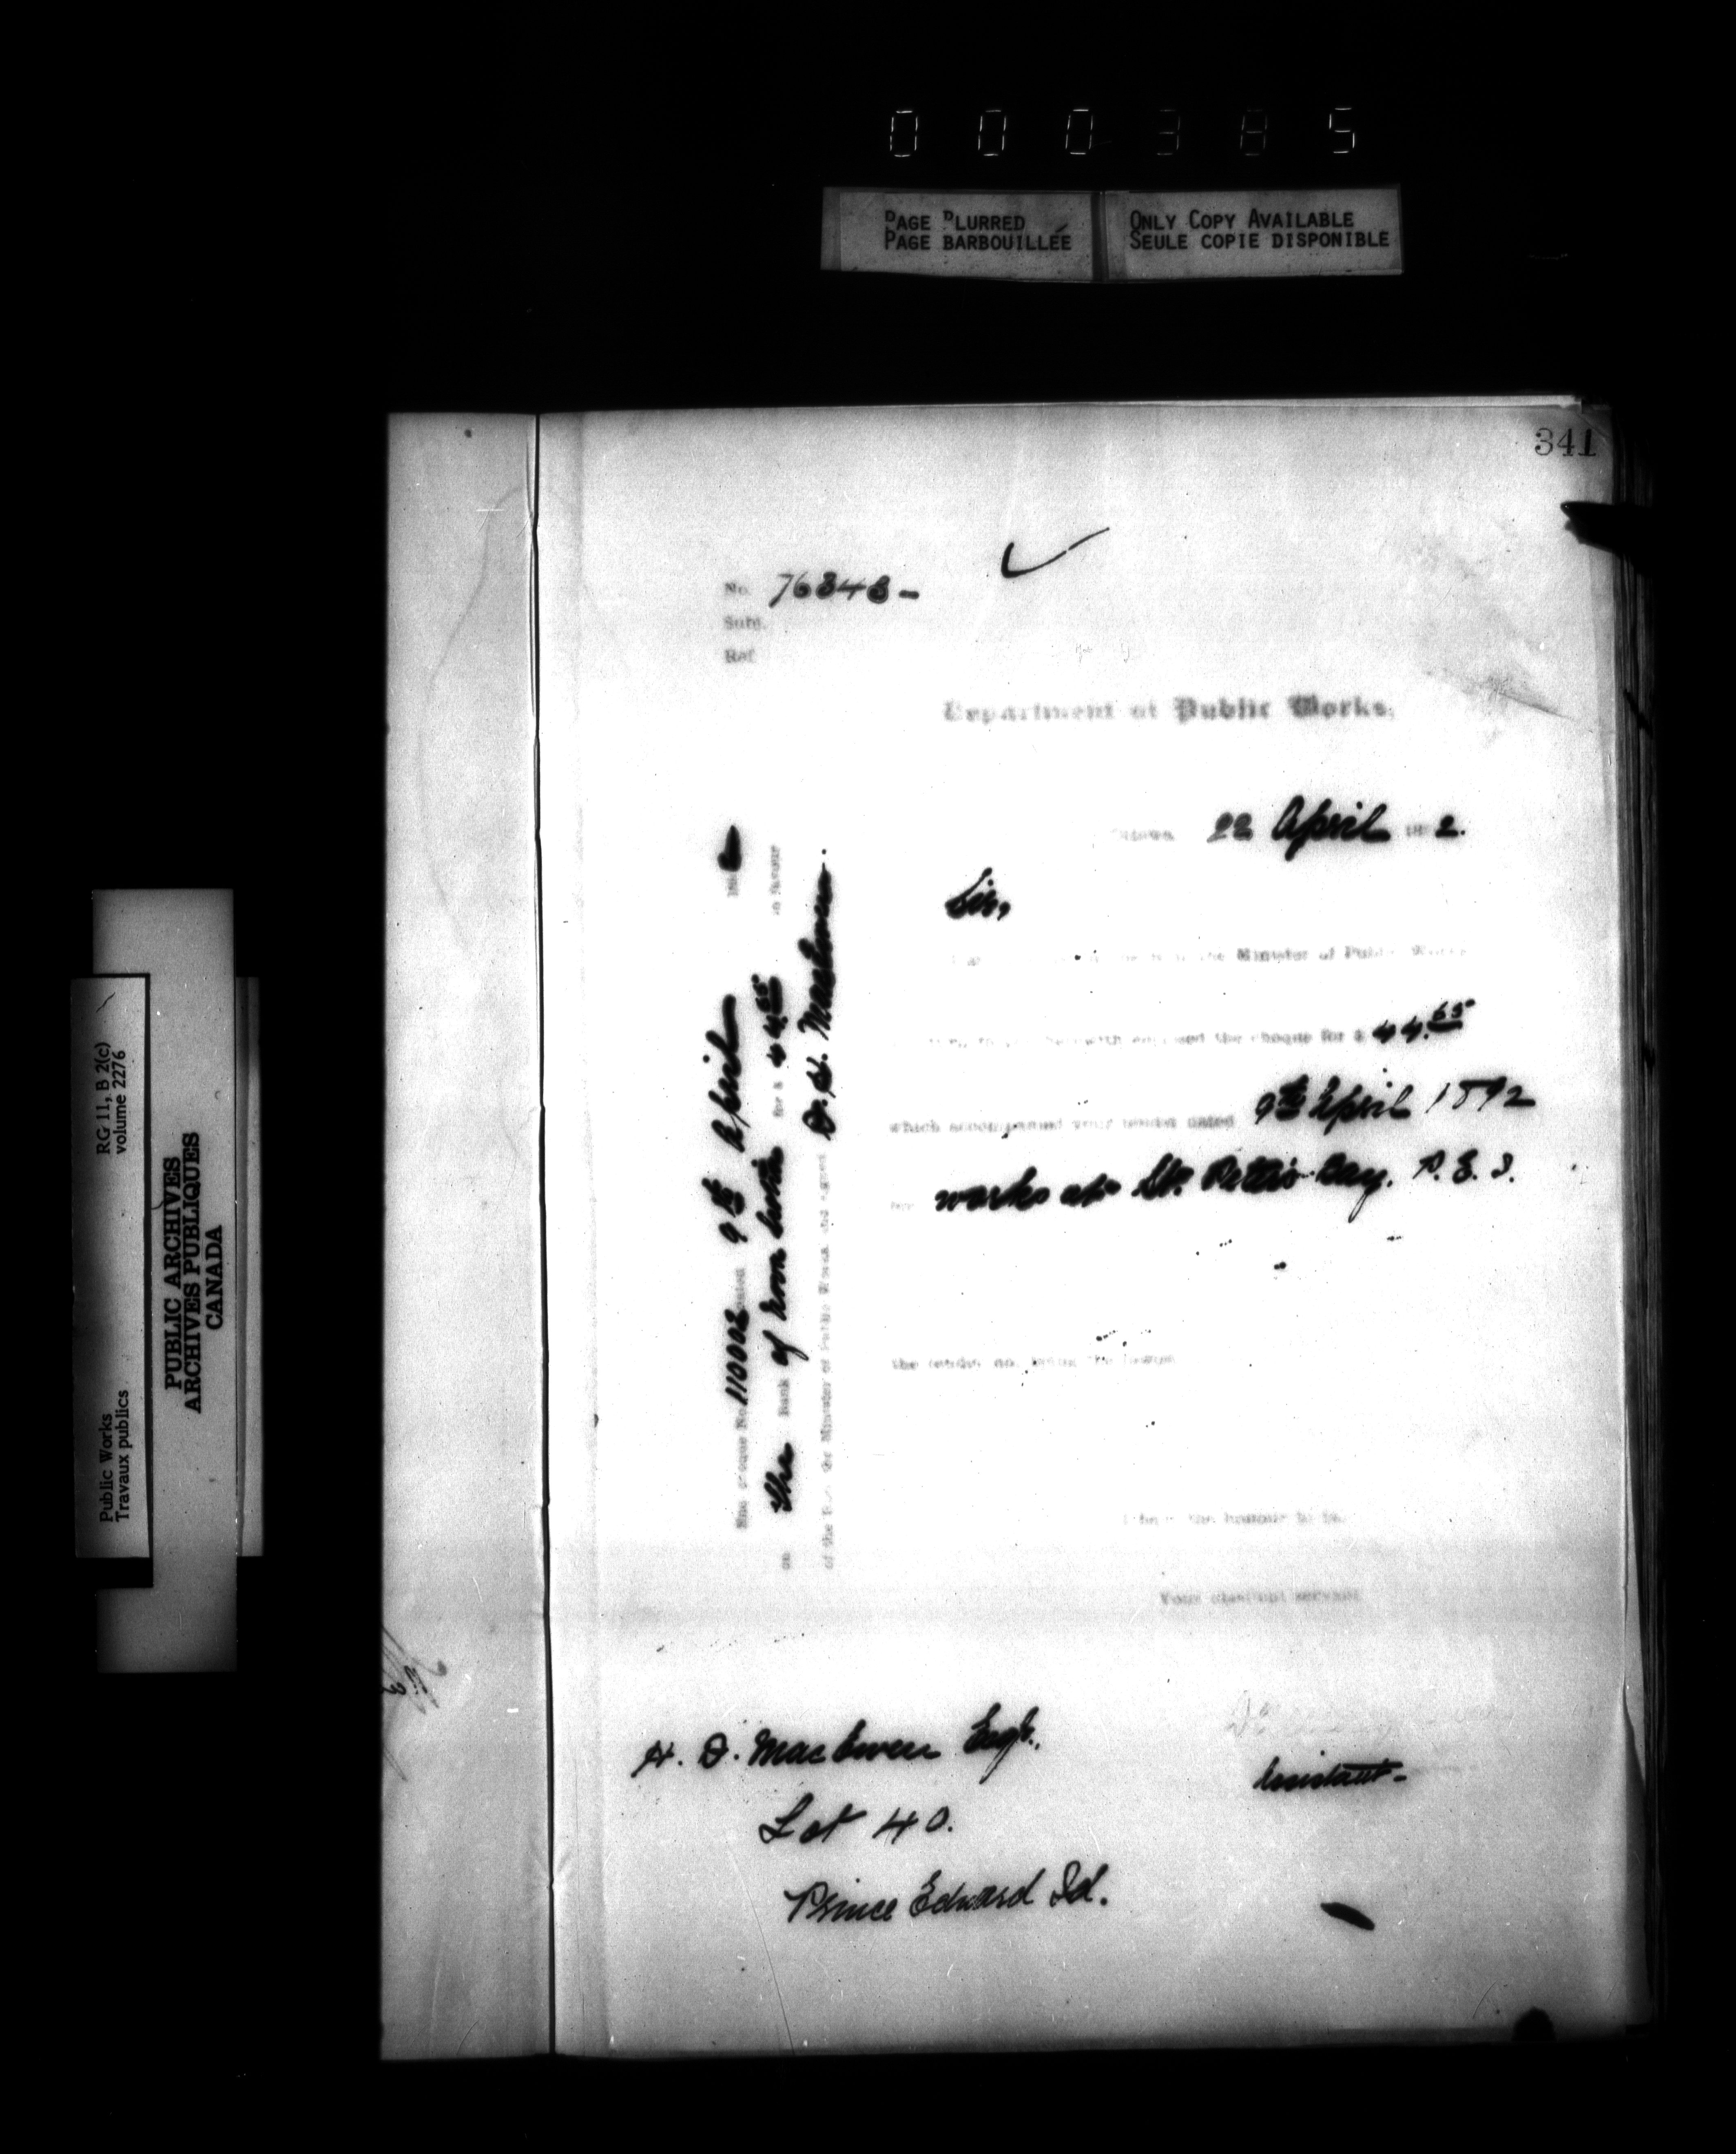 000385
PAGE BLURRED
PAGE BARBOUILLÉE
ONLY COPY AVAILABLE
SEULE COPIE DISPONIBLE
341
No. 76343-
Subj.
Ref
Department of Public Works,
Ottawa 22 April 1892.
Sir,
the Minister of Public Works
herewith enclosed the cheque for $ 44.65
which accompanied your tender dated 9th April 1892
for works at St. Peter's Bay. P. E. I.
the tender not being the lowest
I have the honour to be,
Your obedient servant
Assistant-
H. D. MacEwen Esqr.,
Lot 40.
Prince Edward Id.
Enc cheque No. 110002 dated 9th April 1892
on The Bank of Nova Scotia for $ 44.65 in favour
of the Hon. the Minister of Public Works and signed D. H. MacEwen.
Public Works
Travaux publics
RG 11, B 2(c)
volume 2276
PUBLIC ARCHIVES
ARCHIVES PUBLIQUES
CANADA